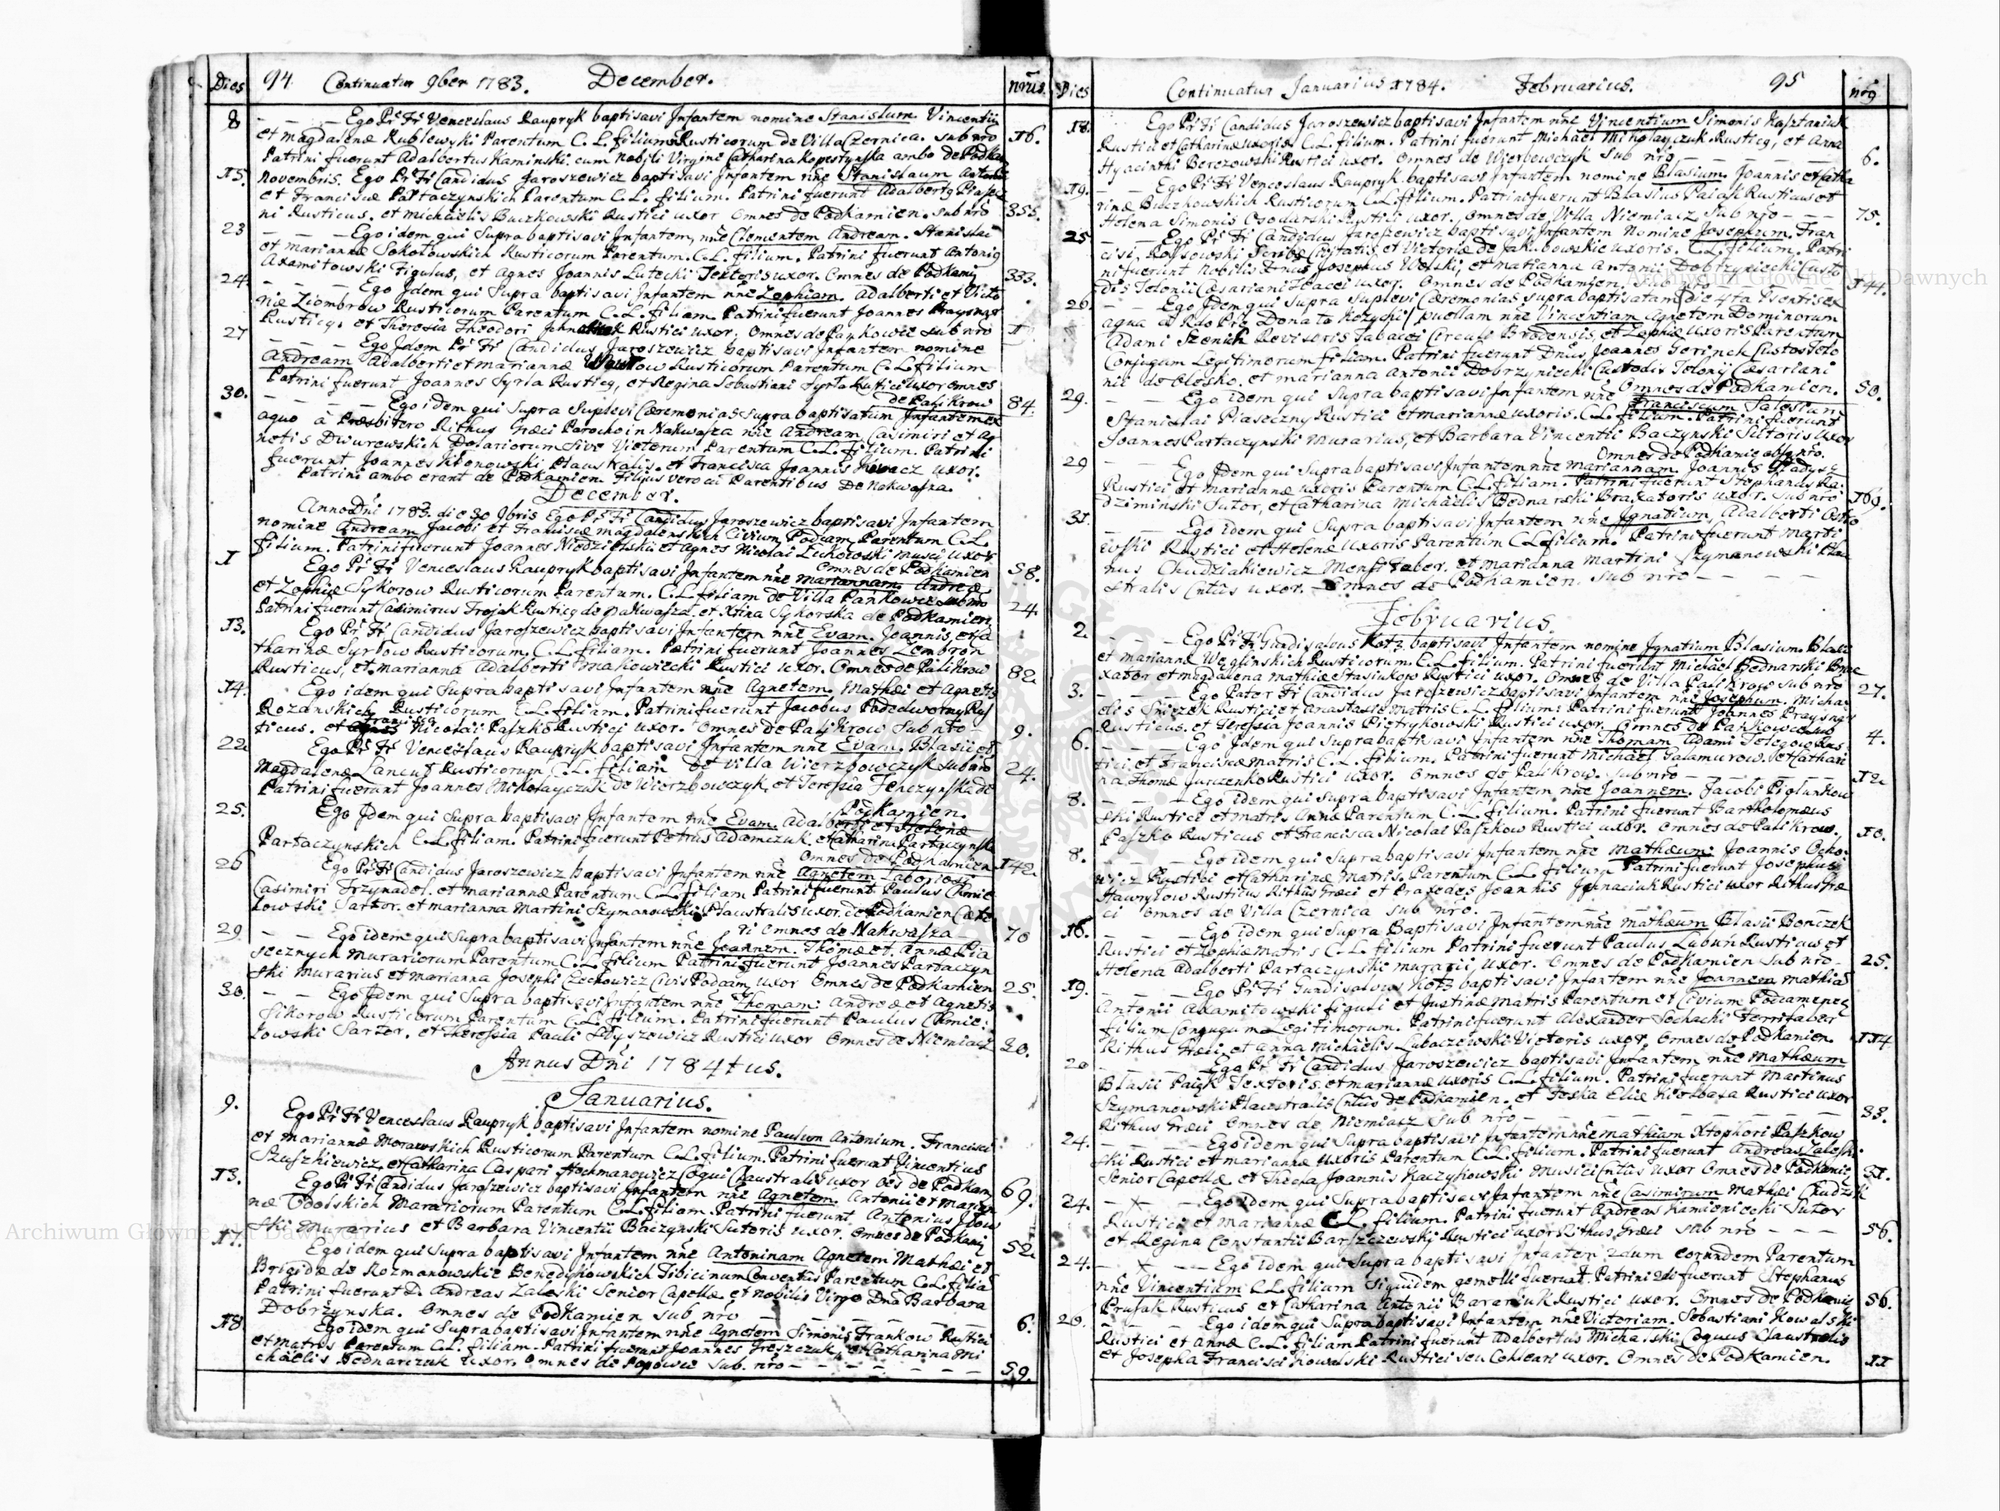 Dies
94 Continuatur 9ber 1783. December.
nrus.
8 Ego Pr Fr Venceslaus Raupryk baptisavi Infantem nomine Stanislum Vincentii
et Magdalenæ Rublewski Parentum C. L. filium Rusticorum de Villa Czernica. sub nro 16.
Patrini fuerunt Adalbertus Kaminski cum Nobili Virgine Catharina Kopestynska ambo de Podkam
15. Novembris. Ego Pr Fr Candidus Jaroszewicz baptisavi Infantem nne Stanislaum Antonii
et Franciscæ Partaczynskich Parentum C. L. filium. Patrini fuerunt Adalbertg
ni Rusticus. et Michaelis Buczkowski Rustici uxor Omnes de Podkamien. sub nro 355.
23 Ego idem qui Supra baptisavi Infantem, nne Clementem Andream. Stanislai
et Mariannæ Sokołowskich Rusticorum Parentum. C. L. filium. Patrini fuerunt Antonig
Axamitowski Figulus, et Agnes Joannis Lutecki Textoris uxor. Omnes de Podkami 333.
24. Ego Idem qui Supra baptisavi Infantem nne Zophiam. Adalberti et Victo
riæ Ziombrow Rusticorum Parentum C. L. filiam. Patrini fuerunt Joannes Praysnar
Rusticg. et Theresia Theodori Rustici uxor. Omnes de Pankowce sub nro 1
27 Ego Idem Pr Fr Candidus Jaroszewicz baptisavi Infantem nomine
Andream Adalberti et Mariannæ Rusticorum Parentum C. L. filium
Patrini fuerunt Joannes Syrla Rusticg, et Regina Sebastiani Syrla Rustici uxor Omnes
de Palikrow 84.
30. Ego idem qui Supra Suplevi Cæremonias supra baptisatum Infantem ex
aquo à Præsbitero Rithus Græci Parocho in Nakwasza nne Andream Casimiri et Ag
netis Dziurewskich Dolariorum sive Vietorum Parentum C. L. filium. Patrini
fuerunt Joannes Kłonowski Plaustralis. et Francisca Joannis uxor.
Patrini ambo erant de Podkamien. Filius vero cu Parentibus De Nakwasza.
December.
Anno Dni 1783. die 30 9bris Ego Pr Fr Candidus Jaroszewicz baptisavi Infantem
nomine Andream Jacobi et Franciscæ Magdalenskich Civium Podcam Parentum C. L.
filium. Patrini fuerunt Joannes Niedzielski et Agnes Nicolai Lichowski Musici uxor
Omnes de Podkamien 58.
1 Ego Pr Fr Venceslaus Raupryk baptisavi Infantem nne Mariannam. Andreæ
et Zophiæ Sykorow Rusticorum Parentum. C. L. filiam de Villa Pankowce sub nro 24.
Patrini fuerunt Casimirus Trojak Rusticg de Nakwasza, et Xtina Sykorska de Podkamien.
13. Ego Pr Fr Candidus Jaroszewicz baptisavi Infantem nne Evam. Joannis, et Ca
tharinæ Syrlow Rusticorum. C. L. filiam. Patrini fuerunt Joannes Zembron
Rusticus, et Marianna Adalberti Makowiecki Rustici uxor. Omnes de Palikrow 82.
14. Ego idem qui Supra baptisavi Infantem nne Agnetem. Mathæi et Agnetis
Rozanskich Rusticorum C. L. filiam. Patrini fuerunt Jacobus Podedworny Rus
ticus. et Francisca Nicolaii Paszko Rustici uxor. Omnes de Palikrow Sub nro 9.
22. Ego Pr Fr Venceslaus Raupryk baptisavi Infantem nne Evam. Blasii et
Magdalenæ Lancut Rusticorum C. L. filiam de Villa Wierzbowczyk sub nro 24.
Patrini fuerunt Joannes Mikołayczuk de Wierzbowczyk, et Teresia Tenczynska de
Podkamien.
25. Ego Idem qui Supra baptisavi Infantem nne Evam. Adalberti et Helenæ
Partaczynskich C. L. filiam. Patrini fuerunt Petrus Adamczuk et Catharina Partaczynska
Omnes de Podkamien 142.
26 Ego Pr Fr Candidus Jaroszewicz baptisavi Infantem nne Agnetem
Casimiri Trzynadel. et Mariannæ Parentum C. L. filiam Patrini fuerunt Paulus Chmie
lowski Sartor. et Marianna Martini Szymanowski Plaustralis uxor. de Podkamien Cæte
ri Omnes de Nakwasza 70
29. Ego idem qui Supra baptisavi Infantem nne Joannem. Thomæ et Annæ Pia
secznych Murariorum Parentum C. L. filium Patrini fuerunt Joannes Partaczyn
ski Murarius et Marianna Josephi Czechowicz Civis Podcam uxor Omnes de Podkamien 25.
30. Ego Idem qui Supra baptisavi Infantem nne Thomam. Andreæ et Agnetis
Sikorow Rusticorum Parentum C. L. filium. Patrini fuerunt Paulus Chmie
lowski Sartor. et Theressia Pauli Rustici uxor Omnes de Niemiacz 20.
Annus Dni 1784tus.
Januarius.
9. Ego Pr Fr Venceslaus Raupryk baptisavi Infantem nomine Paulum Antonium. Francisci
et Mariannæ Morawskich Rusticorum Parentum C. L. filium. Patrini fuerunt Vincentius
Szuszkiewicz, et Catharina Caspari Hochmanowicz Coqui Claustralis uxor Oes de Podkam 69.
13. Ego Pr Fr Candidus Jaroszewicz baptisavi Infantem nne Agnetem. Antonii et Marian
næ Podolskich Murariorum Parentum C. L. filiam. Patrini fuerunt, Antonius
ski Murarius et Barbara Vincentii Baczynski Sutoris uxor. Omnes de Podkami 52.
17. Ego idem qui Supra baptisavi Infantem nne Antoninam Agnetem Mathæi et
Brigidæ de Rozmanowskie Benedykowskich Tibicinum Conventus Parentum C. L. filia
Patrini fuerunt D. Andreas Zaleski Senior Capellæ et Nobilis Virgo Dna Barbara
Dobrzynska. Omnes de Podkamien sub nro 6.
18 Ego idem qui Supra baptisavi Infantem nne Agnetem Simonis Frankow Rustici
et Matris Parentum C. L. filiam. Patrini fuerunt Joannes Treszczuk, et Catharina Mi
chaelis Bednarczuk uxor. Omnes de Popowce Sub. nro 59.
Dies
Continuatur Januarius 1784. Februarius. 95
nrg
18. Ego Pr Fr Candidus Jaroszewicz baptisavi Infantem nne Vincentium Simonis
Rustici et Catharinæ uxoris C. L. filium. Patrini fuerunt Michael Mikołayczuk Rusticg, et Anna
Hyacinthi Berezowski Rustici uxor. Omnes de Wierbowczyk sub nro 6.
19. Ego Pr Fr Venceslaus Raupryk baptisavi Infantem nomine Blasium Joannis et Catha
rinæ Buczkowskich Rusticorum C. L. filium. Patrini fuerunt Blasius Paiak Rusticus et
Helena Simonis Ogodarski Rustici uxor. Omnes de Villa Niemiacz Sub nro 75.
25 Ego Pr Fr Candidus Jaroszewicz baptisavi Infantem Nomine Josephum Fran
cisi, Rossowski Scribæ Civitatis et Victoriæ de Jakubowskie uxoris. C. L. filium. Patri
ni fuerunt Nobilis Dnus Josephus Wolski, et Marianna Antonii Dobrzyniecki Custo
dis Telonii Cæsariani uxor. Omnes de Podkamien. 144.
26. Ego Idem qui Supra suplevi Cæremonias supra baptisatam Die 4ta Psentis ex
aqua a Rdo Pre Donato puellam nne Vincentiam Agnetem Dominorum
Adami Szenich Revisoris Tabacci Circuli Brodensis, et Zophiæ uxoris Parentum
Conjugum Legitimorum filiam. Patrini fuerunt Dnus Joannes Gerinek Custos Telo
nii de Olesko. et Marianna Antonii Dobrzyniecki Custodis Telony Cæsariani
Omnes de Podkamien. 50.
29. Ego idem qui Supra baptisavi Infantem nne Franciscum Salesium
Stanislai Piaseczny Rustici et Mariannæ uxoris. C. L. filium. Patrini fuerunt
Joannes Partaczynski Murarius, et Barbara Vincentii Baczynski Sutoris uxor
Omnes de Podkamie absq nro.
29 Ego Idem qui Supra baptisavi Infantem nne Mariannam. Joannis
Rustici et Mariannæ uxoris Parentum C. L. filiam. Patrini fuerunt Stephanus Ra
dziminski Sutor, et Catharina Michaelis Bednarski Braxatoris uxor. Sub nro 169.
31. Ego idem qui Supra baptisavi Infantem nne Ignatium. Adalberti
Rustici et Helenæ uxoris Parentum C. L. filium. Patrini fuerunt Marti
nus Chudziakiewicz faber. et Marianna Martini Szymanowski Plau
stralis uxor. Omnes de Podkamien. sub nro
Februarius.
2. Ego Pr Fr Gundisalvus Kotz baptisavi Infantem nomine Ignatium Blasium. Blasii
et Mariannæ Węglinskich Rusticorum. C. L. filium. Patrini fuerunt Michael Bednarski Brae
xator et Magdalena Mathiæ Stasiukojo Rustici uxor. Omnes de Villa Palikrow sub nro 27.
3. Ego Pater Fr Candidus Jaroszewicz baptisavi Infantem nne Josephum. Micha
elis Sniezek Rustici et Anastasiæ Matris C. L. filium. Patrini fuerunt Joannes Praysnar
Rusticus. et Teressia Joannis Pietrykowski Rustici uxor. Omnes de Pankowce sub 4.
6. Ego Idem qui Supra baptisavi Infantem nne Thomam Adami Rus
tici, et Franciscæ Matris C. L. filium. Patrini fuerunt Michael Gałamurow. et Cathari
na Thomæ Jurczenko Rustici uxor. Omnes de Palikrow. sub nro 12.
8. Ego idem qui Supra baptisavi Infantem nne Joannem. Jacobi Piglunkow
ski Rustici et Matr. Annæ Parentum C. L. filium. Patrini fuerunt Bartholomæus
Paszko Rusticus et Francisca Nicolai Paszkow Rustici uxor. Omnes de Palikrow. 10.
8. Ego idem qui Supra baptisavi Infantem nne Mathæum. Joannis
wicz Rustici et Catharinæ Matris. Parentum C. L. filium Patrini fuerunt Josephus
Hawrylow Rusticus Rithus Græci et Praxedes Joannis Ignaciuk Rustici uxor Rithus Græ
ci Omnes de Villa Czernica sub nro.
16. Ego idem qui Supra Baptisavi Infantem nne Mathæum Blasii Bonczek
Rustici et Zophiæ Matris C. L. filium Patrini fuerunt Paulus Labun Rusticus et
Helena Adalberti Partaczynski Murarii, uxor. Omnes de Podkamien Sub nro 25.
19. Ego Pr Fr Gundisalvus Kotz baptisavi Infantem nne Joannem Mathiæ
Antonii Axamitowski Figuli et Justinæ Matris Parentum et Civium
filium Conjugum Legitimorum. Patrini fuerunt Alexander Sochacki Ferrifaber
Rithus Græci et Anna Michaelis Lubaczewski Victoris uxor, Omnes de Podkamien. 114
20. Ego Pr. Fr Candidus Jaroszewicz baptisavi Infantem nne Mathæum
Blasii Paiąk Textoris. et Mariannæ uxoris C. L. filium. Patrini fuerunt Martinus
Szymanowski Plaustralis de Podkamien. et Teska Eliæ Kiołbasa Rustici uxor
Rithus Græci Omnes de Niemiacz sub nro 33.
24. Ego idem qui Supra baptisavi Infantem nne Mathiam Xtophori Paszkow
ski Rustici et Mariannæ uxoris Parentum C. L. filium. Patrini fuerunt Andreas Zaleski
Senior Capellæ et Thecla Joannis Kaczykowski Musici uxor Omnes de Podkamie 31.
24. Ego idem qui Supra baptisavi Infantem nne Casimirum Mathæi
Rustici et Mariannæ C. L. filium. Patrini fuerunt Andreas Kamieniecki Sutor
et Regina Constantii Barszczewski Rustici uxor Rithus Græci sub nro 56.
24. Ego idem qui Supra baptisavi Infantem 2dum eorundem Parentum
nne Vincentium C. L. filium Siquidem gemelli fuerunt. Patrini 2di fuerunt Stephanus
Prusak Rusticus et Catharina Antonii Rustici uxor. Omnes de Podkamie 56.
29. Ego idem qui Supra baptisavi Infantem nne Victoriam. Sebastiani Kowalski
Rustici et Annæ C. L. filiam Patrini fuerunt Adalbertus Michalski Coquus Claustralis
et Josepha Francisci Kowalski Rustici seu Cokleari uxor. Omnes de Podkamien. 11
Archiwum Główne Akt Dawnych
Archiwum Główne Akt Dawnych